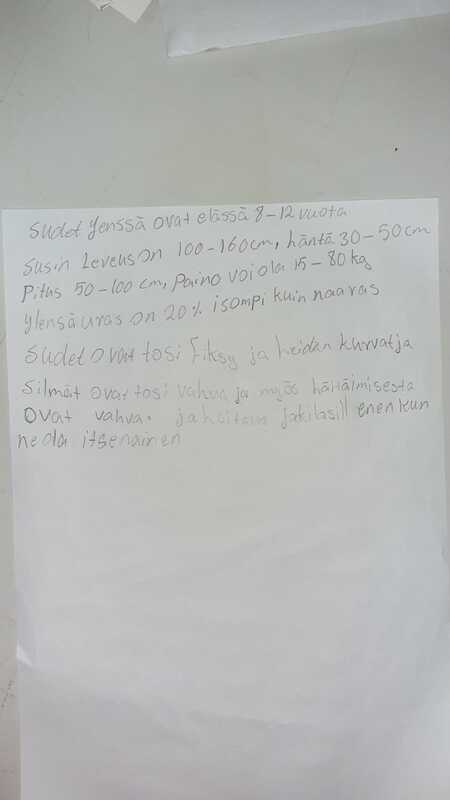 Sudet yenssä ovat elässä 8-12 vuota
Susin Leveuson 100-160cm, häntä 30-50cm
Pitus 50-100 cm, Paino voi ola 15-80 kg
Ylensä uras on 20% isompi kuin naaras
Sudet ovat tosi fiksy ja heidan kurvat ja
Silmät ovat tosi vahva ja myös
ovat vahva. ja enen kun
ne ola itsenainen